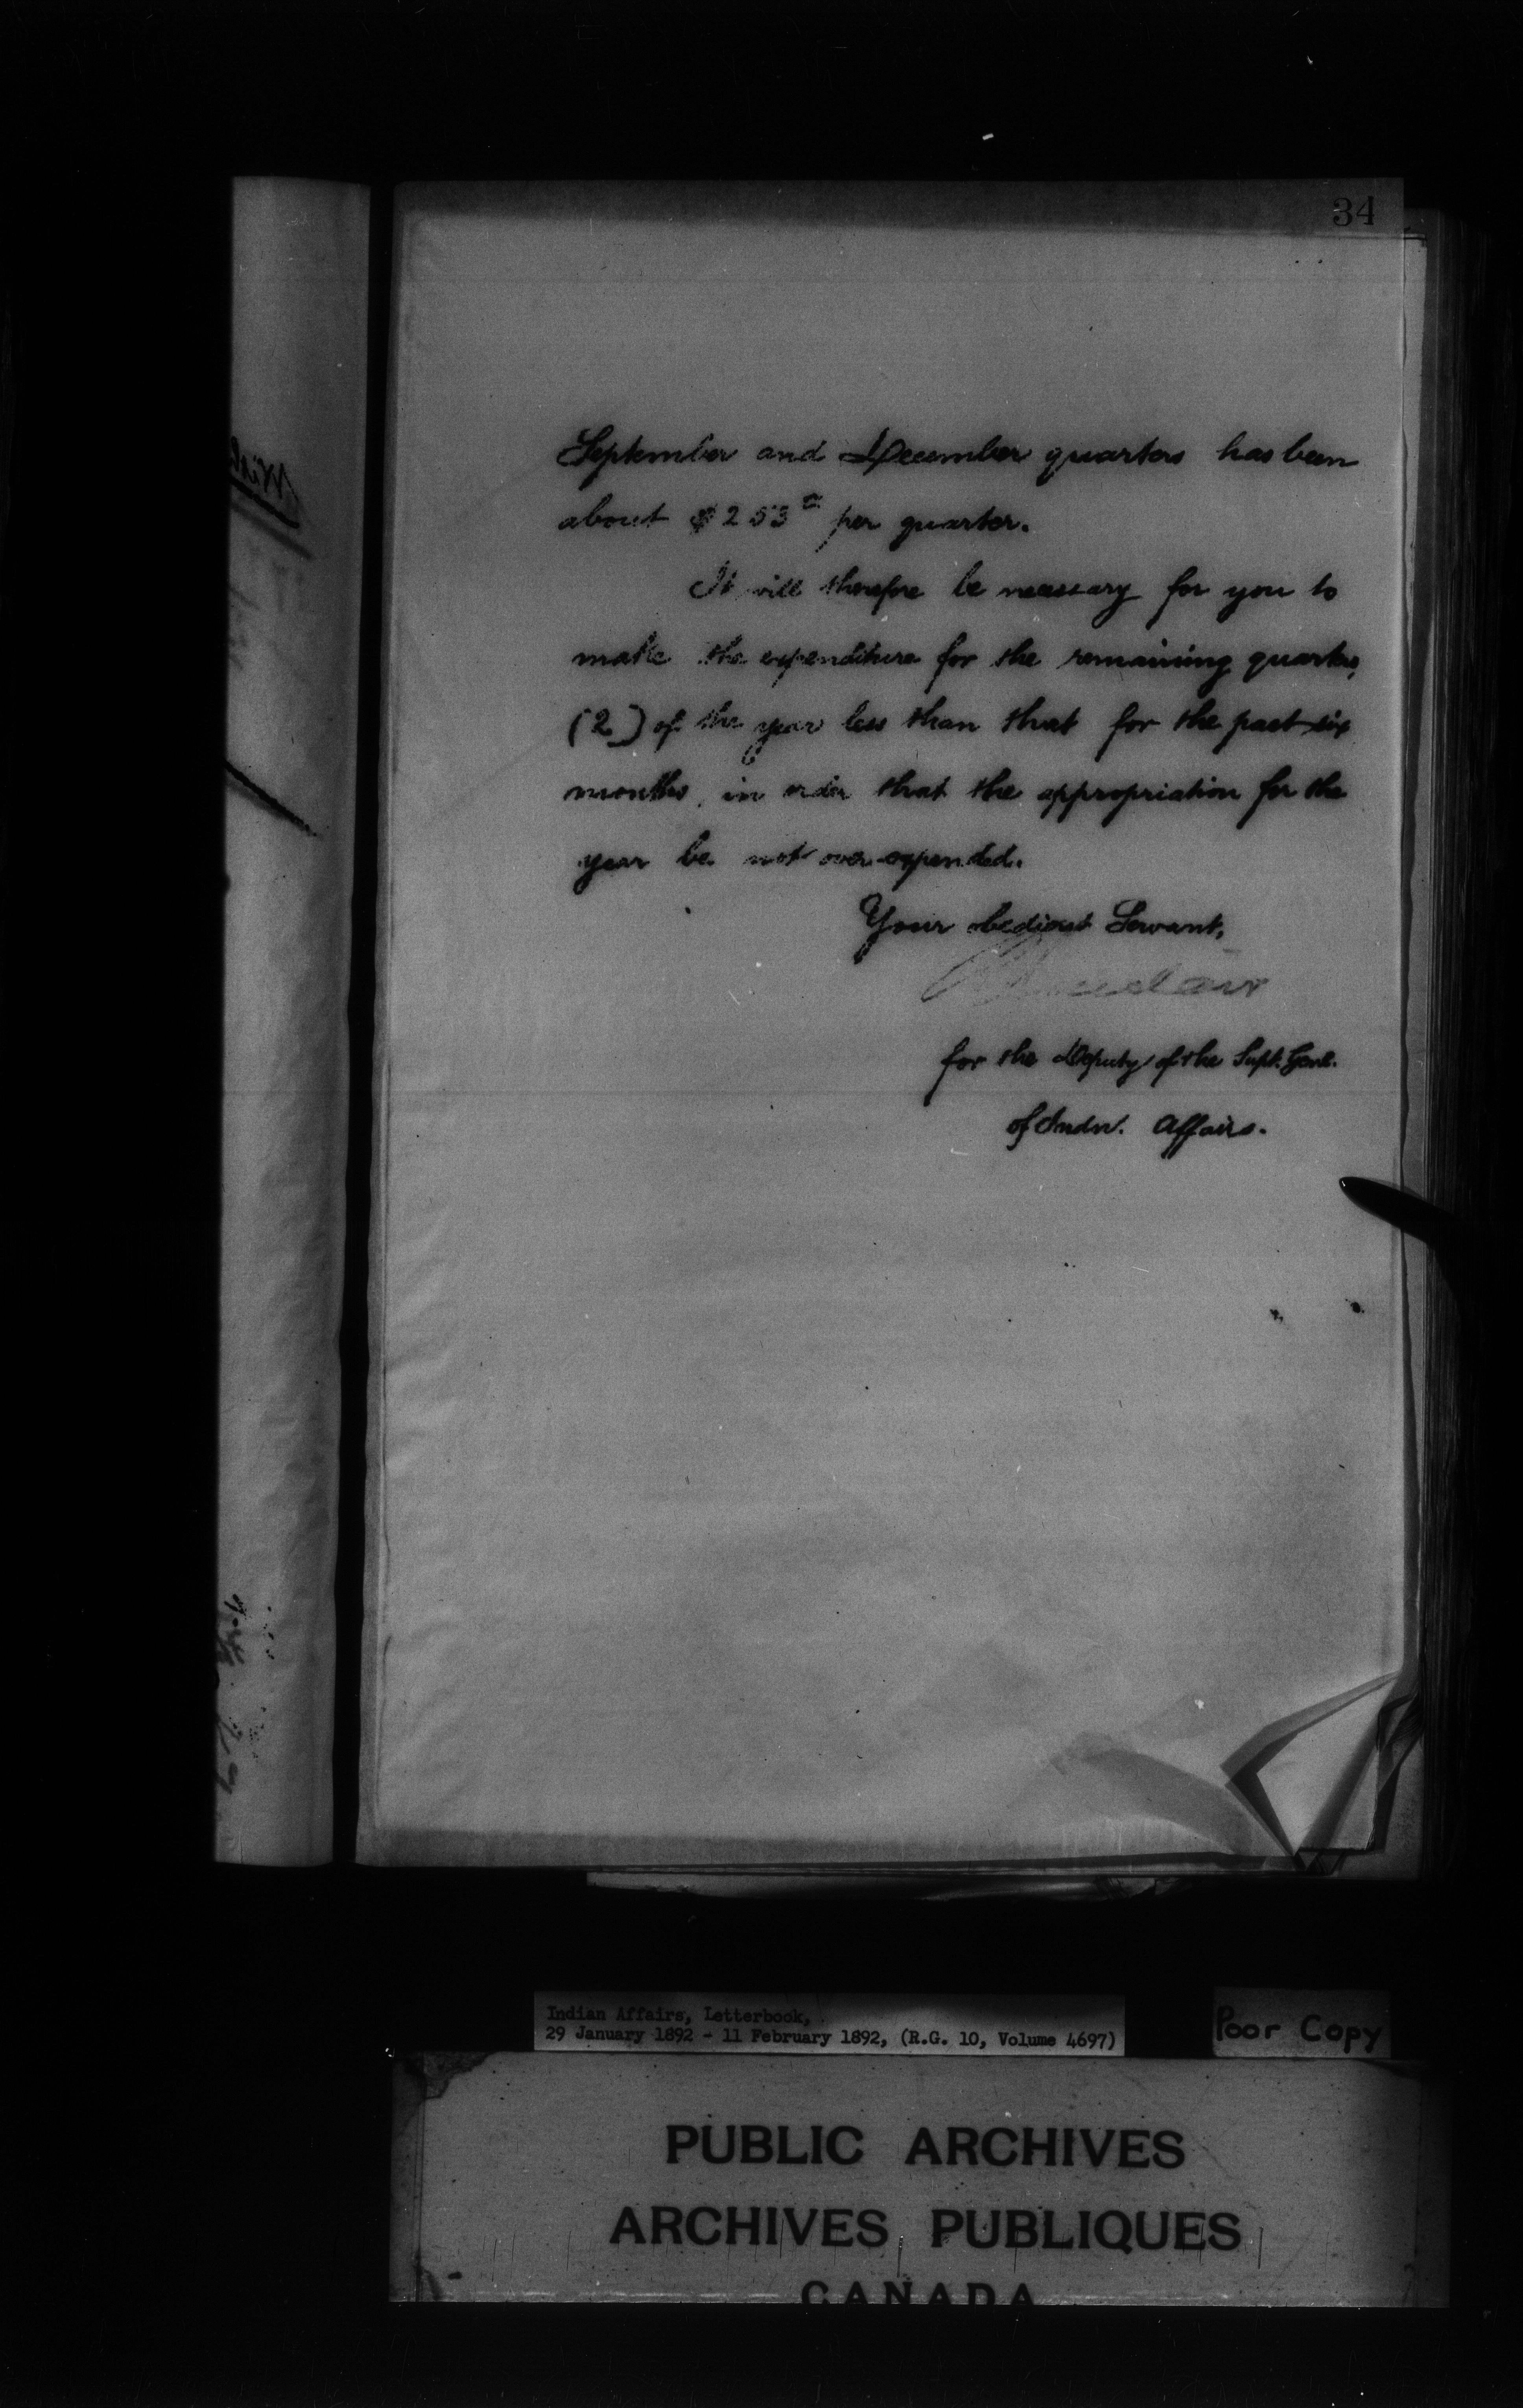 34
September and December quarters has been
about $253.00 per quarter.
It will therefore be necessary for you to
make the expenditure for the remaining quarters
(2) of the year less than that for the past six
months, in order that the appropriation for the
year be not over-expended.
Your obedient Servant,
for the Deputy of the Supt. Genl.
of Indn. Affairs.
Indian Affairs, Letterbook,
29 January 1892 - 11 February 1892, (R.G. 10, Volume 4697)
Poor Copy
PUBLIC ARCHIVES
ARCHIVES PUBLIQUES
CANADA